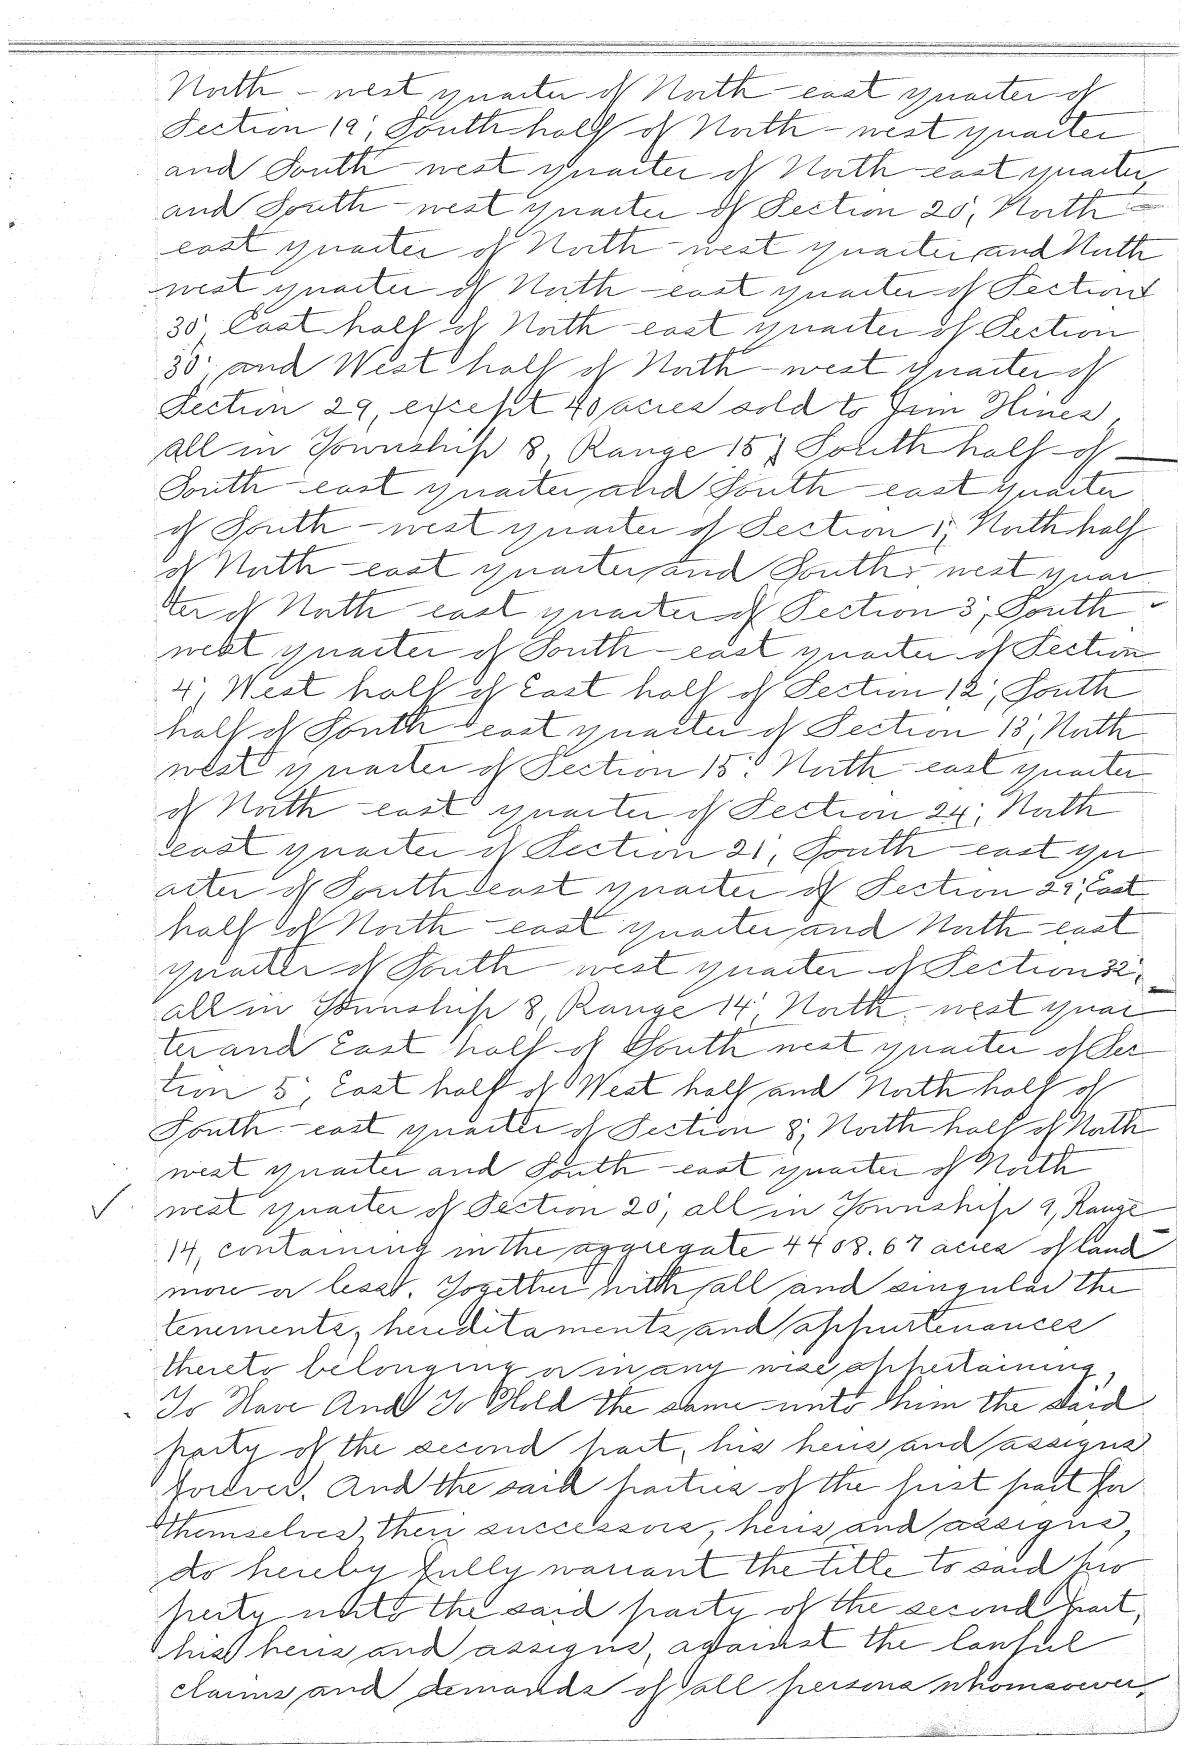 North - west quarter of North east quarter of
Section 19; South half of North - west quarter
and South west quarter of North east quarter,
and South - west quarter of Section 20; North -
east quarter of North - west quarter and North
west quarter of North - east quarter of Section
30; East half of North east quarter of Section
30; and West half of North - west quarter of
Section 29, except 40 acres sold to Jim Hines,
all in Township 8, Range 15; South half of
South - east quarter and South - east quarter
of South - west quarter of Section 1; North half
of North - east quarter and South - west quar
ter of North east quarter of Section 3; South -
west quarter of South - east quarter of Section
4; West half of East half of Section 12; South
half of South east quarter of Section 13; North
west quarter of Section 15; North - east quarter
of North - east quarter of Section 24; North
east quarter of Section 21; South - east qu
arter of South east quarter of Section 29; East
half of North - east quarter and North - east
quarter of South west quarter of Section 32;
all in Township 8, Range 14; North - west quar
ter and East half of South west quarter of Sec
tion 5; East half of West half and North half of
South - east quarter of Section 8; North half of North
west quarter and South - east quarter of North
west quarter of Section 20; all in Township 9, Range
14, containing in the aggregate 4408.67 acres of land
more or less. Together with all and singular the
tenements, hereditaments and appurtenances
thereto belonging or in any wise appertaining,
To Have And To Hold the same unto him the said
party of the second part, his heirs and assigns
forever. And the said parties of the first part for
themselves, their successors, heirs and assigns,
do hereby fully warrant the title to said pro
perty unto the said party of the second part,
his heirs and assigns, against the lawful
claims and demands of all persons whomsoever.